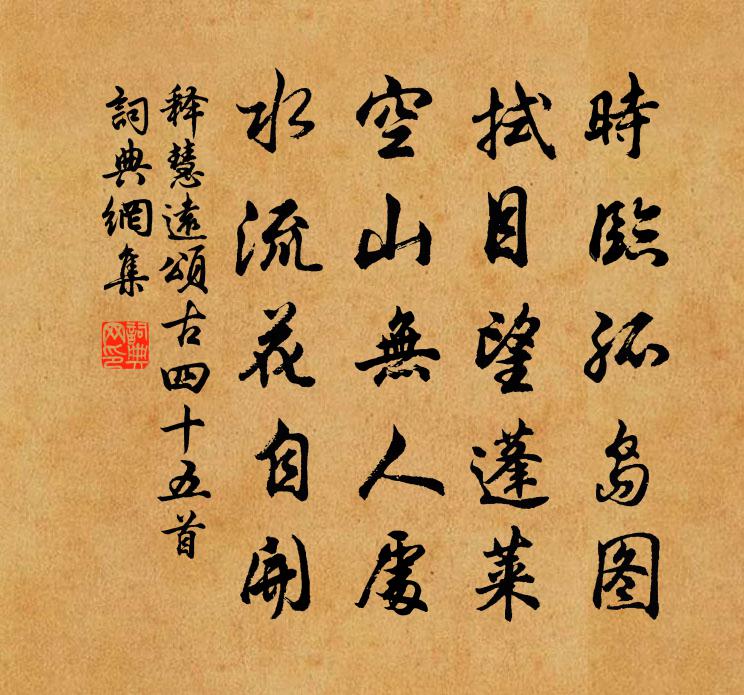 時臨孤島图
拭目望蓬莱
空山無人處
水流花自開
释慧遠頌古四十五首
詞典網集
詞典网印